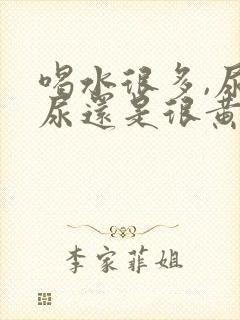 喝水很多,尿
尿還是很黃
李家菲姐